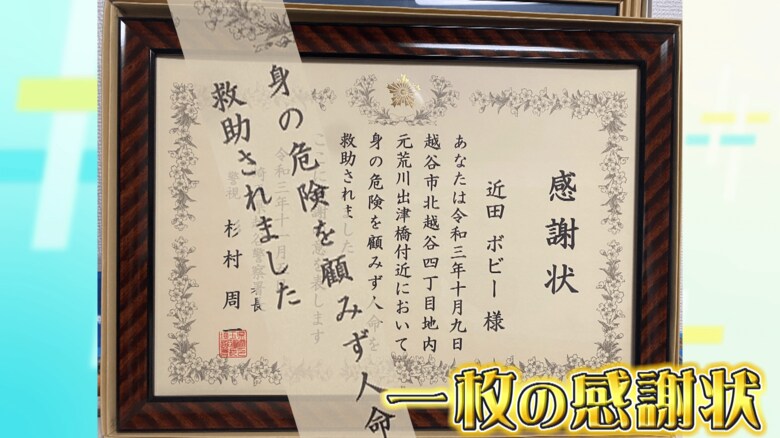 感謝状
近田 ボビー 様
あなたは令和三年十月九日
越谷市北越谷四丁目地内
元荒川出津橋付近において
身の危険を顧みず人命を
救助されました
表します
令和三年十一月
警察署長
警視 杉村周一
身の危険を顧みず人命
救助されました
一枚の感謝状